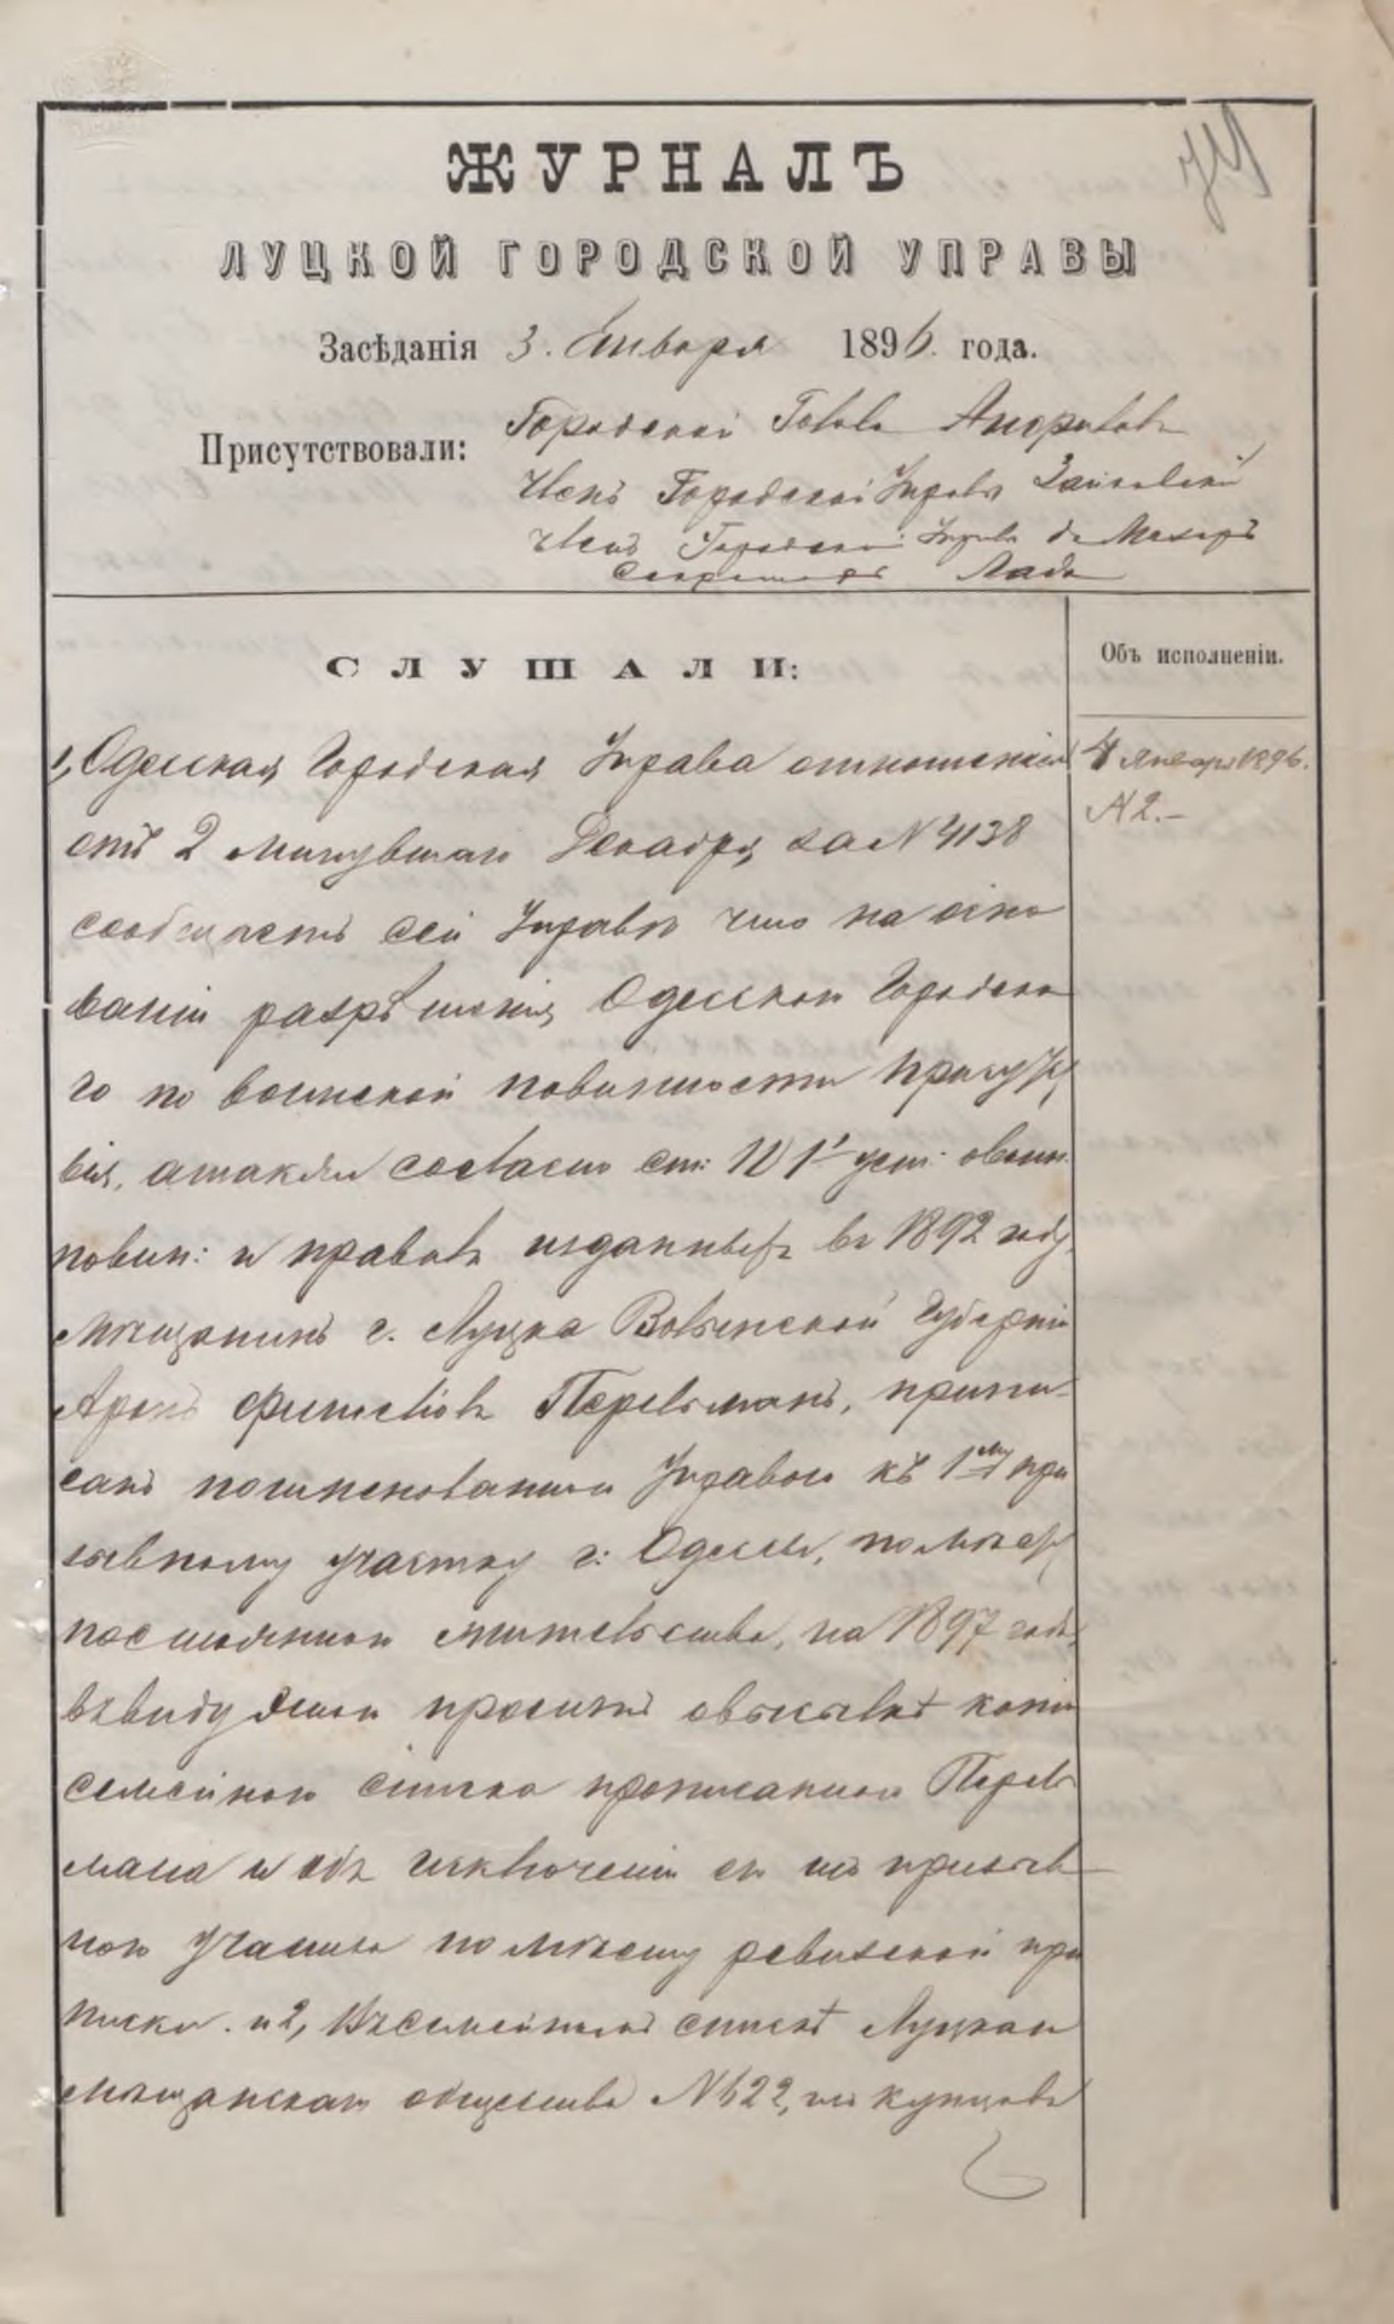 ЖУРНАЛЪ
ЛУЦКОЙ ГОРОДСКОЙ УПРАВЫ
Засѣданія 3. Января 1896. года.
Присутствовали:
Городской Голова
Членъ Городской Управы
Членъ Городской Управы
Секретарь
СЛУШАЛИ:
Объ исполненіи.
4 Января 1896.
N 2.–
1, Одесская Городская Управа отношеніем
отъ 2 минувшаго Декабря за N 4138
сообщаетъ сей Управѣ что на осно
ваніи разрѣшенія Одесскаго Городска
го по воинской повинности Присутс
вія, а также согласно ст: уст: о воин.
повин: и правовъ изданныхъ въ 1892 году,
мѣщанинъ г. Луцка Волынской Губерніи
Аронъ Перельманъ, припи-
санъ поименованною Управою къ 1му при
зывному участку г: Одессы, по мѣсту
постояннаго жительства, на 1897 годъ,
въ виду сего проситъ о высылкѣ копіи
семейнаго списка прописаннаго Перель
мана и объ исключеніи его изъ призыв
ного участка по мѣсту ревизской при
писки. и 2, Въ семейномъ спискѣ Луцкаго
мѣщанскаго общества N 622, изъ купцовъ